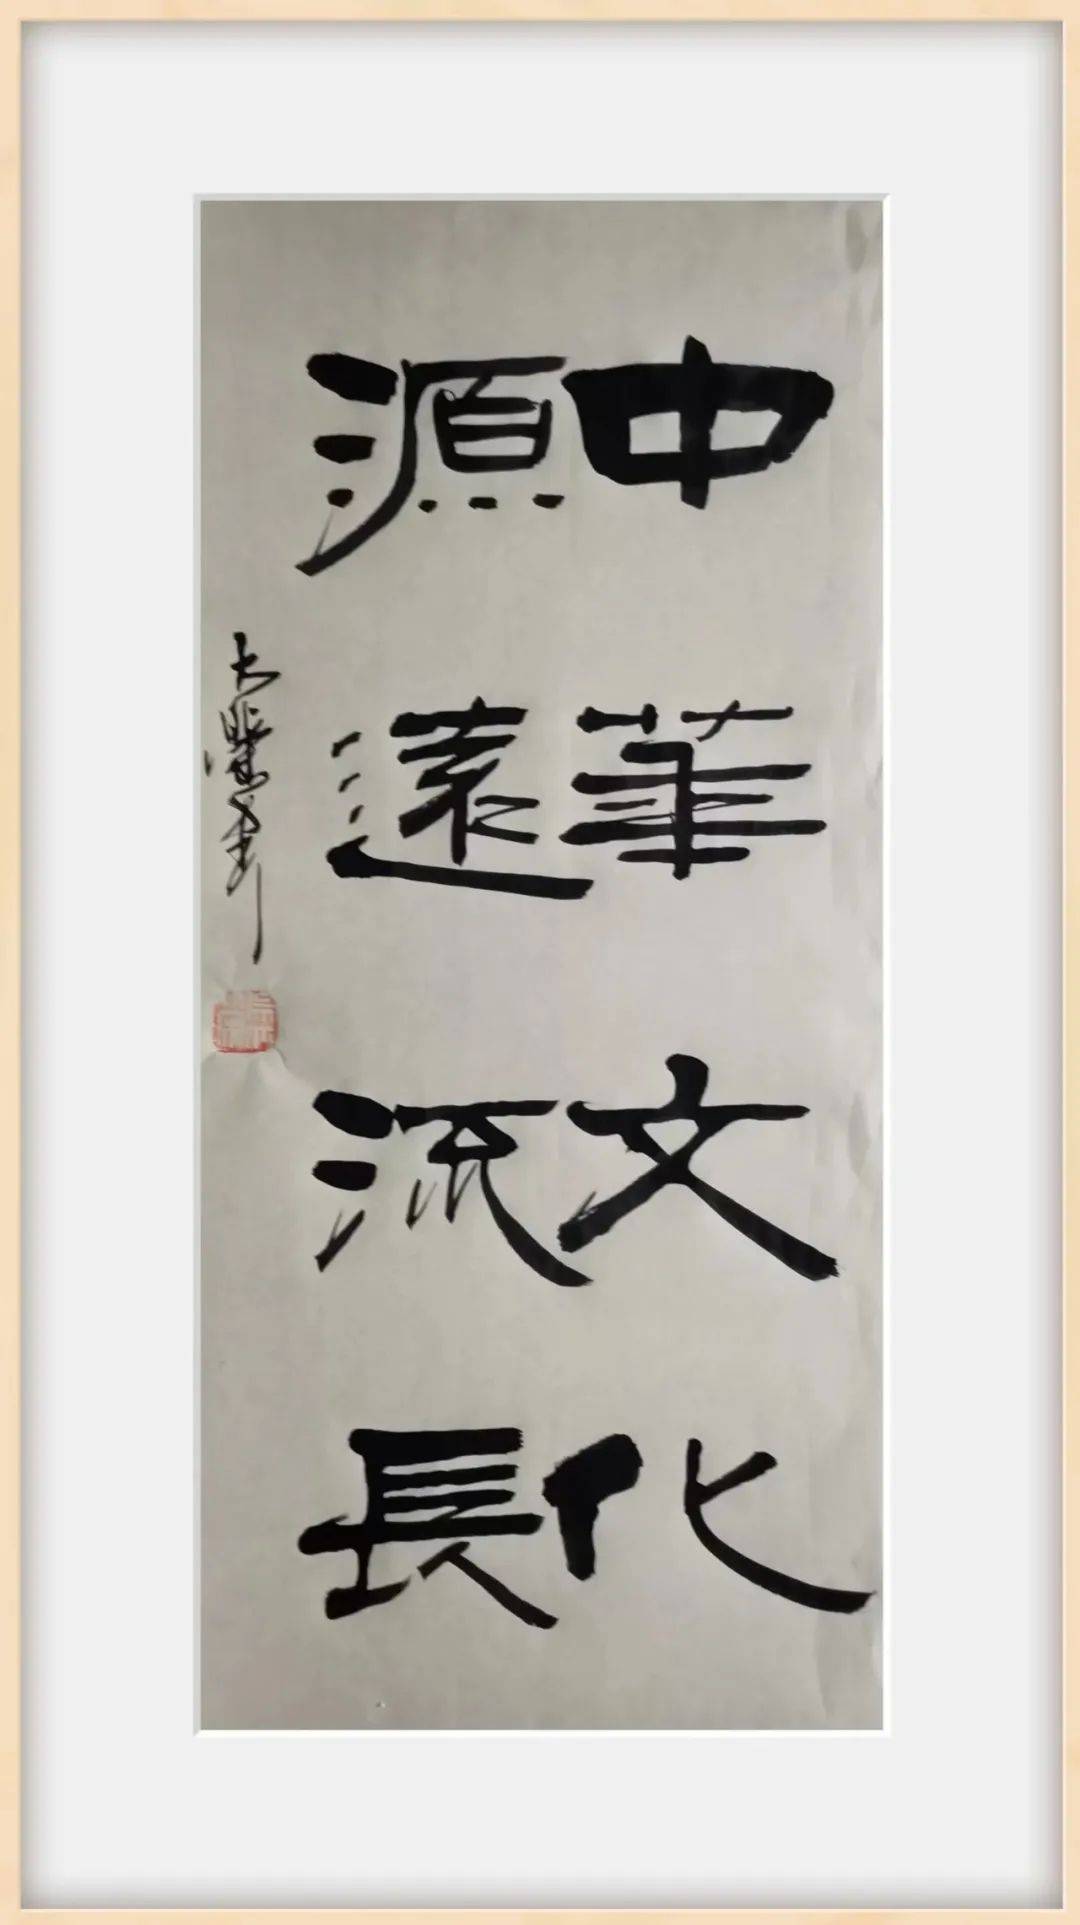 中華文化
源遠流長